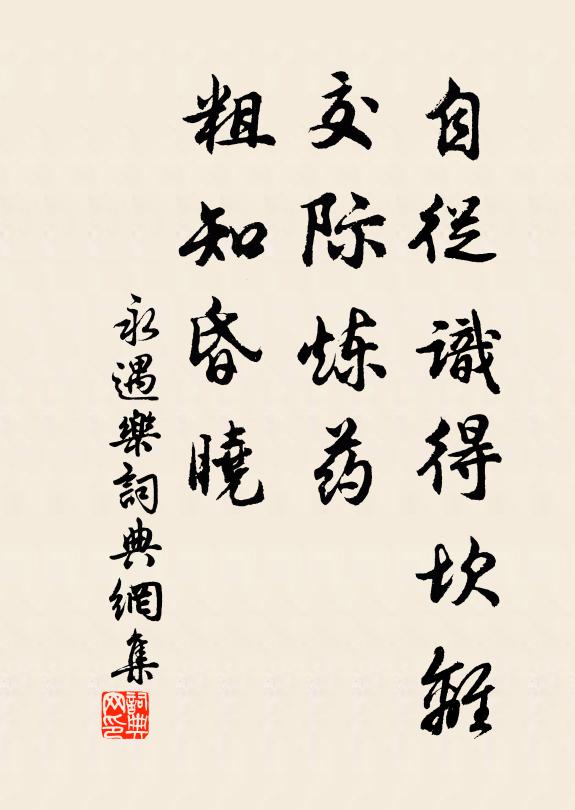 自從識得坎離
交际炼药
粗知昏曉
永遇樂詞典網集
詞典网印